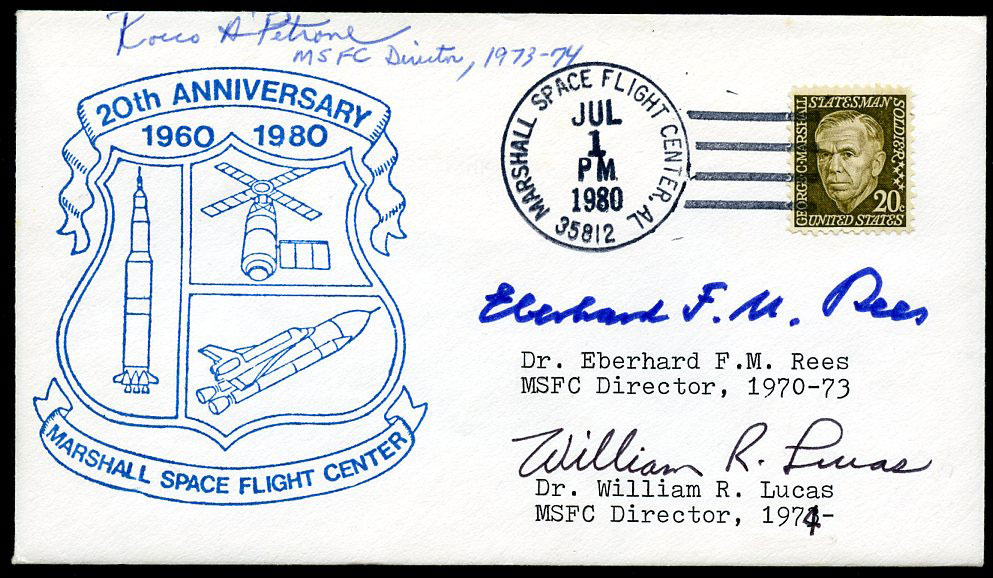 Rocco A Petrone
MSFC Director, 1973-74
20th ANNIVERSARY
1960 1980
MARSHALL SPACE FLIGHT CENTER
MARSHALL SPACE FLIGHT CENTER, AL
JUL
1
PM
1980
35812
GEORGE C. MARSHALL
STATESMAN
SOLDIER
20c
UNITED STATES
Eberhard F. M. Rees
Dr. Eberhard F.M. Rees
MSFC Director, 1970-73
William R. Lucas
Dr. William R. Lucas
MSFC Director, 1974-